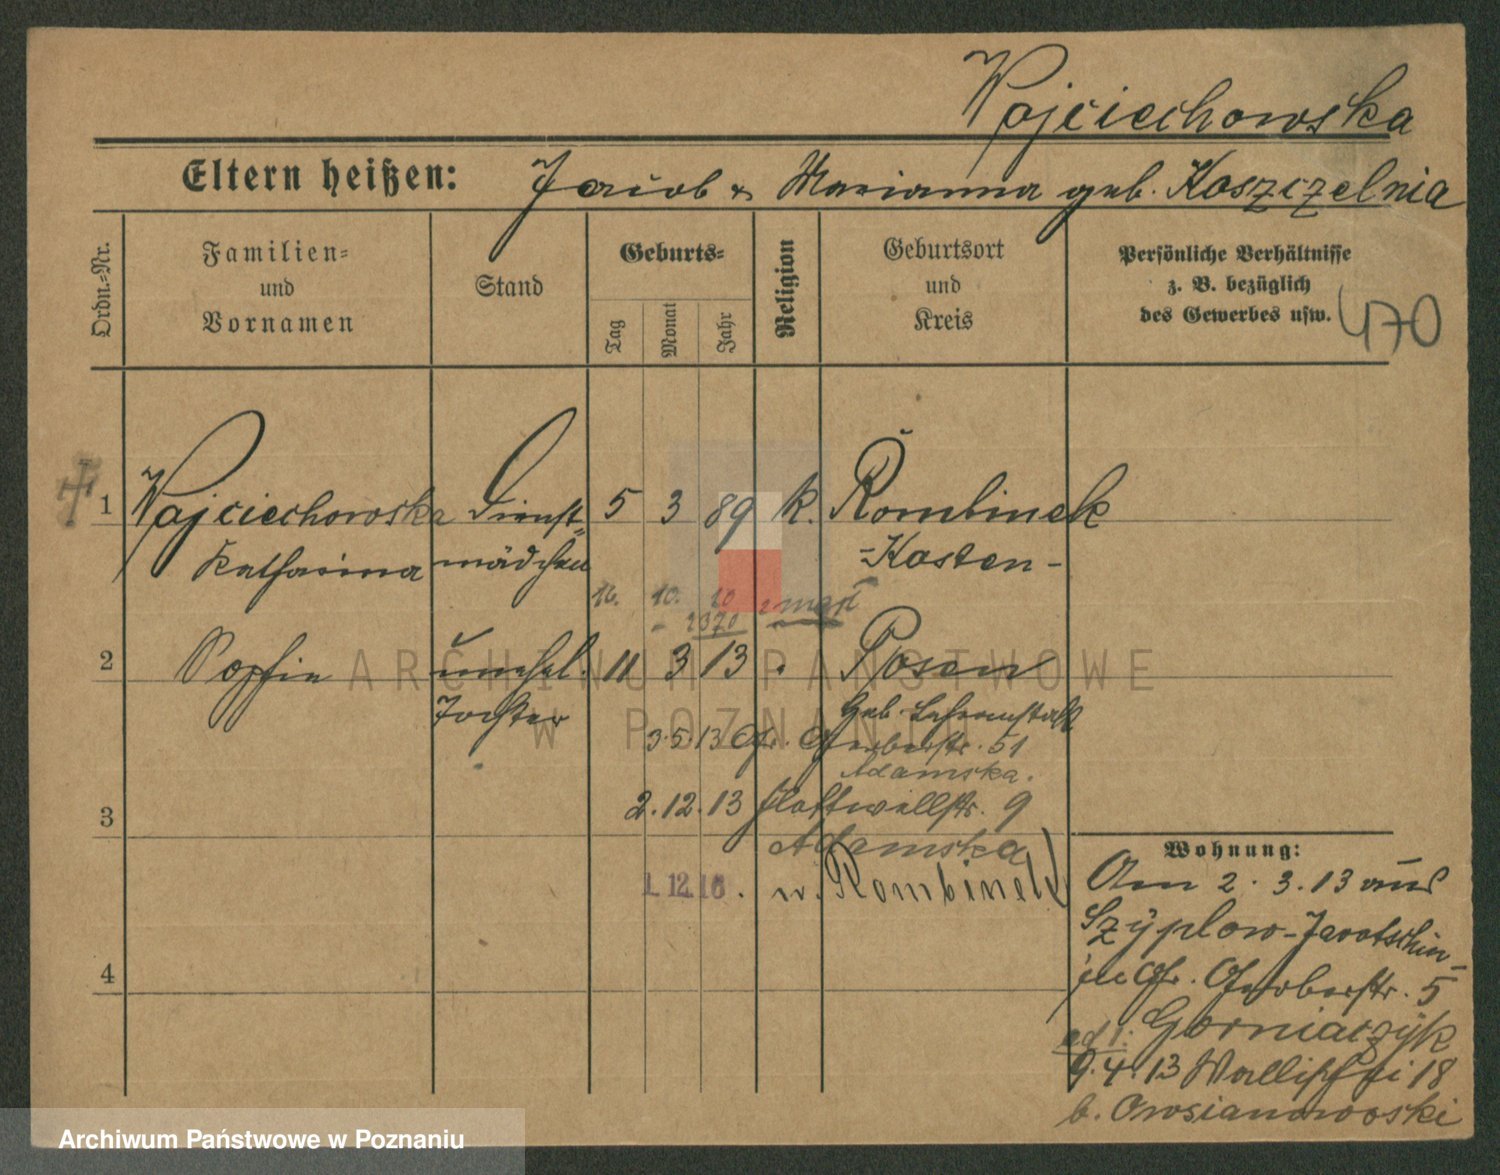 Wojciechowska
Eltern heißen: Jacob & Marianna geb. Koszczelnia
Ordn.=Nr.
Familien=
und
Vornamen
Stand
Geburts=
Tag
Monat
Jahr
Religion
Geburtsort
und
Kreis
Persönliche Verhältnisse
z. B. bezüglich
des Gewerbes usw.
470
1 Wojciechowska Dienst= 5 3 89 k. Rombinek
Katharina mädchen -Kosten-
16. 10. 20
2370
2 Sophie unehel. 11 3 13 " Posen
Tochter Geb. Lehranstalt
3.5.13 Gr. Gerberstr. 51
Adamska.
2.12.13 Flottwellstr. 9
3
Adamska
1.12.16. n. Rombinek
4
Wohnung:
Am 2.3.13 aus
Szyplow-Jarotschin-
in Gr. Gerberstr. 5
Gorniaczyk
ad 1.
9.4.13 Wallischei 18
b. Owsianowski
ARCHIWUM PAŃSTWOWE
W POZNANIU
Archiwum Państwowe w Poznaniu